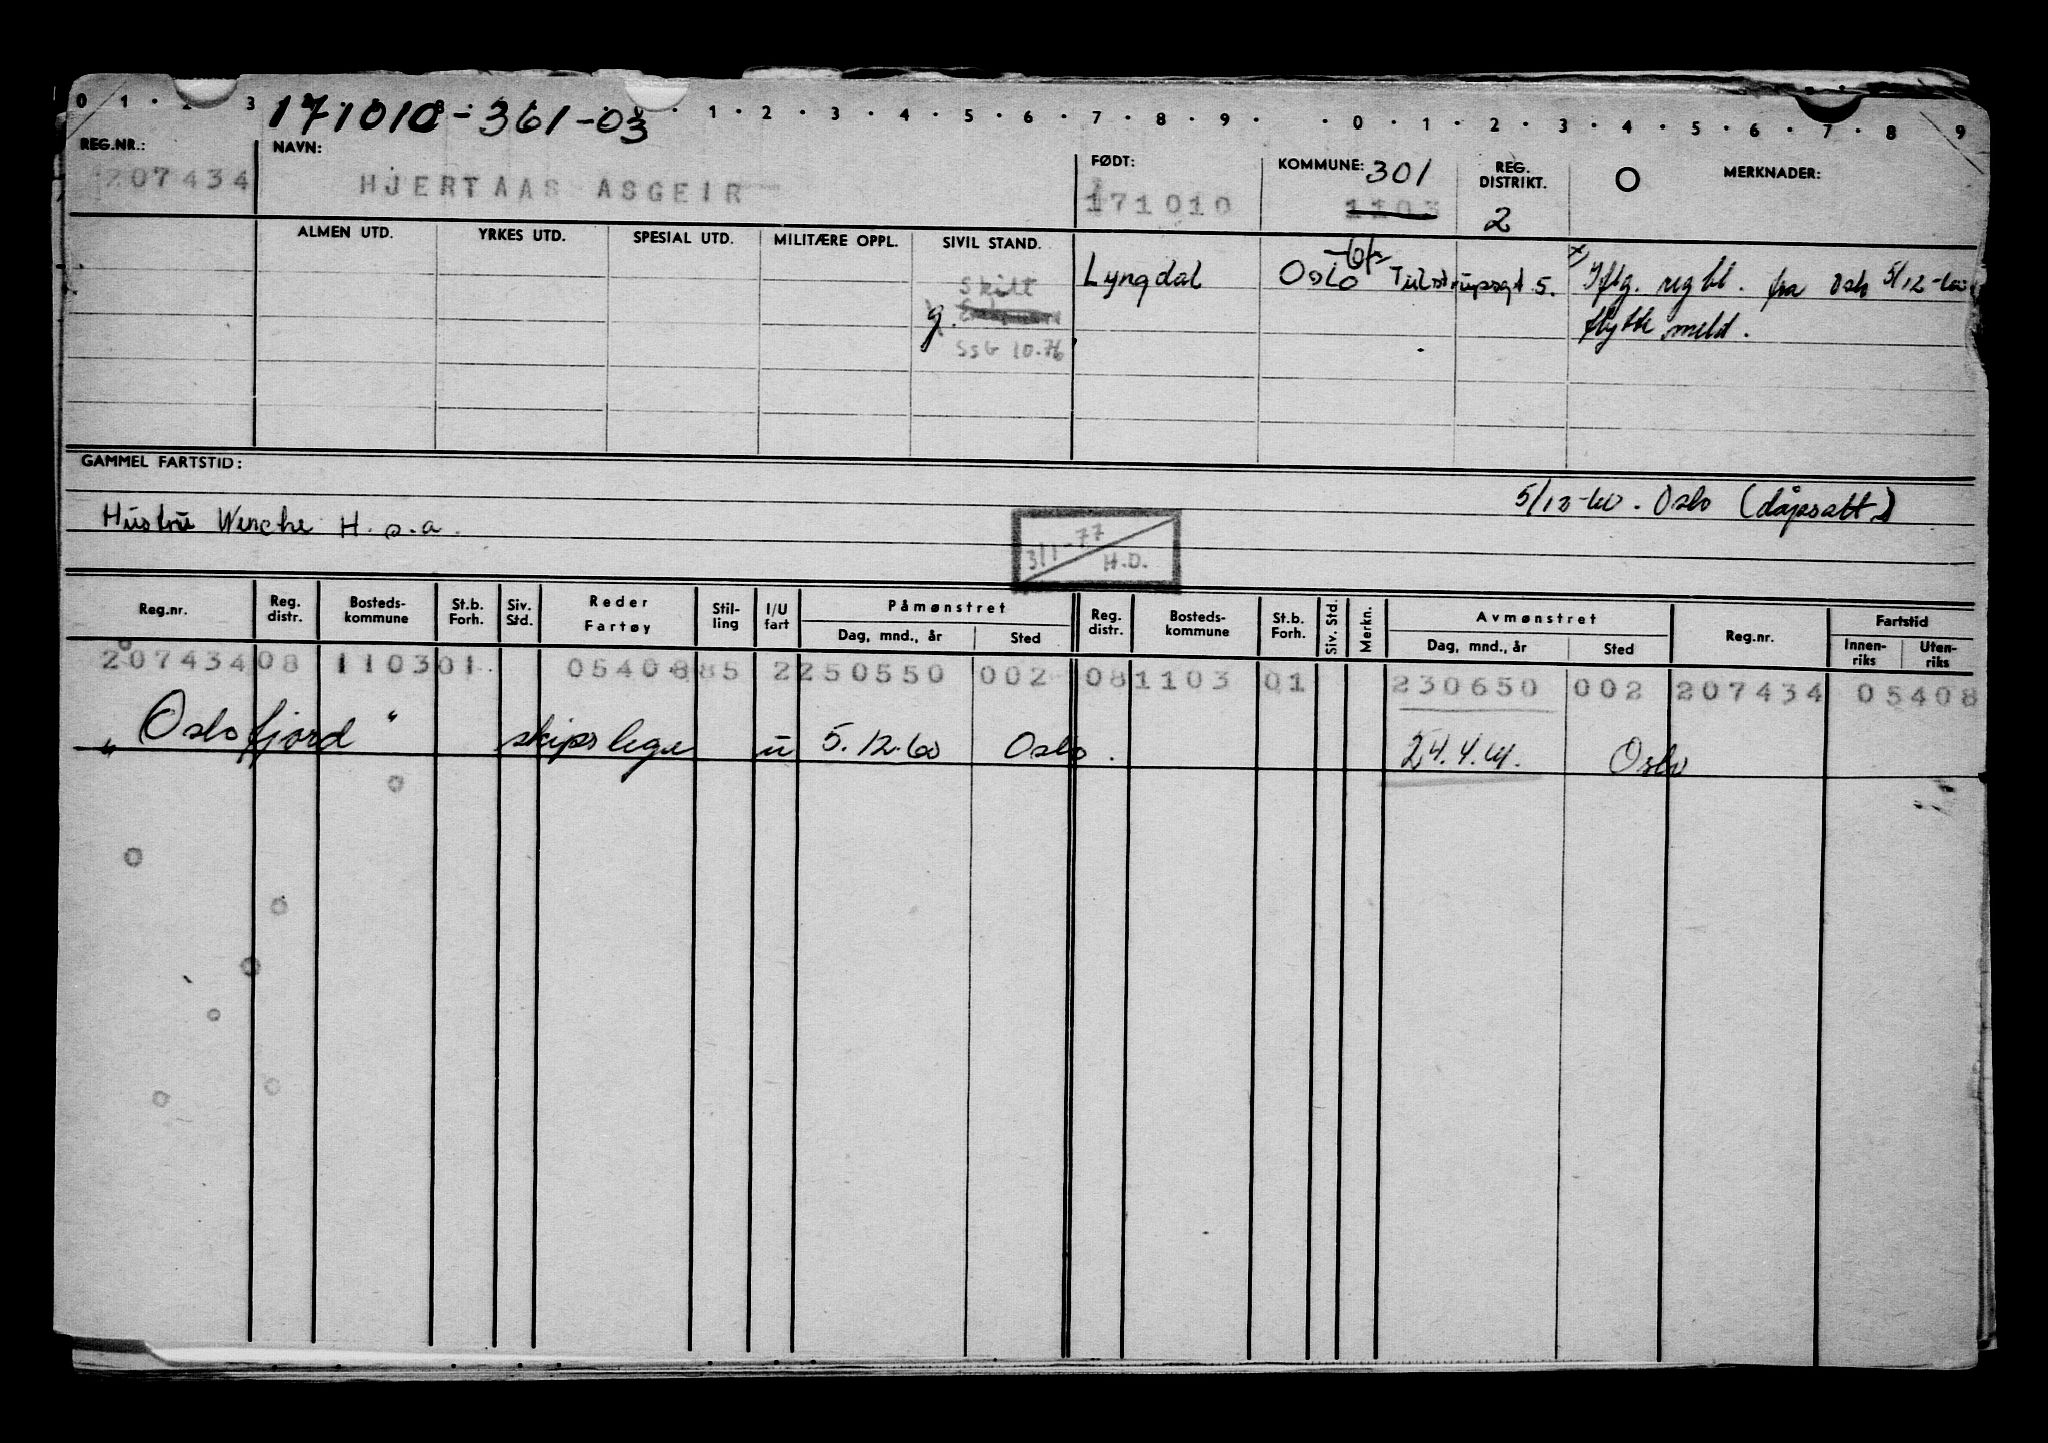 0 1 2 3 1 2 3 4 5 6 7 8 9 0 1 2 3 4 5 6 7 8 9
171010-361-03
REG.NR.: NAVN: FØDT: KOMMUNE: 301 REG. DISTRIKT. O MERKNADER:
207434 HJERTAAS ASGEIR 171010 1103 2
ALMEN UTD. YRKES UTD. SPESIAL UTD. MILITÆRE OPPL. SIVIL STAND.
Skilt Lyngdal Oslo 5. Iflg. reg bl. fra Oslo 5/12-60
g. flytte meld.
SSG 10.76
GAMMEL FARTSTID:
5/12-60. Oslo (dåpsatt.)
Hustru Wenche H. s.a.
3/1-77 H.D.
Reg.nr. Reg. distr. Bosteds-kommune St.b. Forh. Siv. Std. Reder Fartøy Stil-ling I/U fart Påmønstret Reg. distr. Bosteds-kommune St.b. Forh. Siv. Std. Merkn. Avmønstret Reg.nr. Fartstid
Dag, mnd., år Sted Dag, mnd., år Sted Innen-riks Uten-riks
207434 08 1103 01 05408 85 2 250550 002 08 1103 01 230650 002 207434 05408
"Oslofjord" skipslege u 5.12.60 Oslo. 24.4.61. Oslo